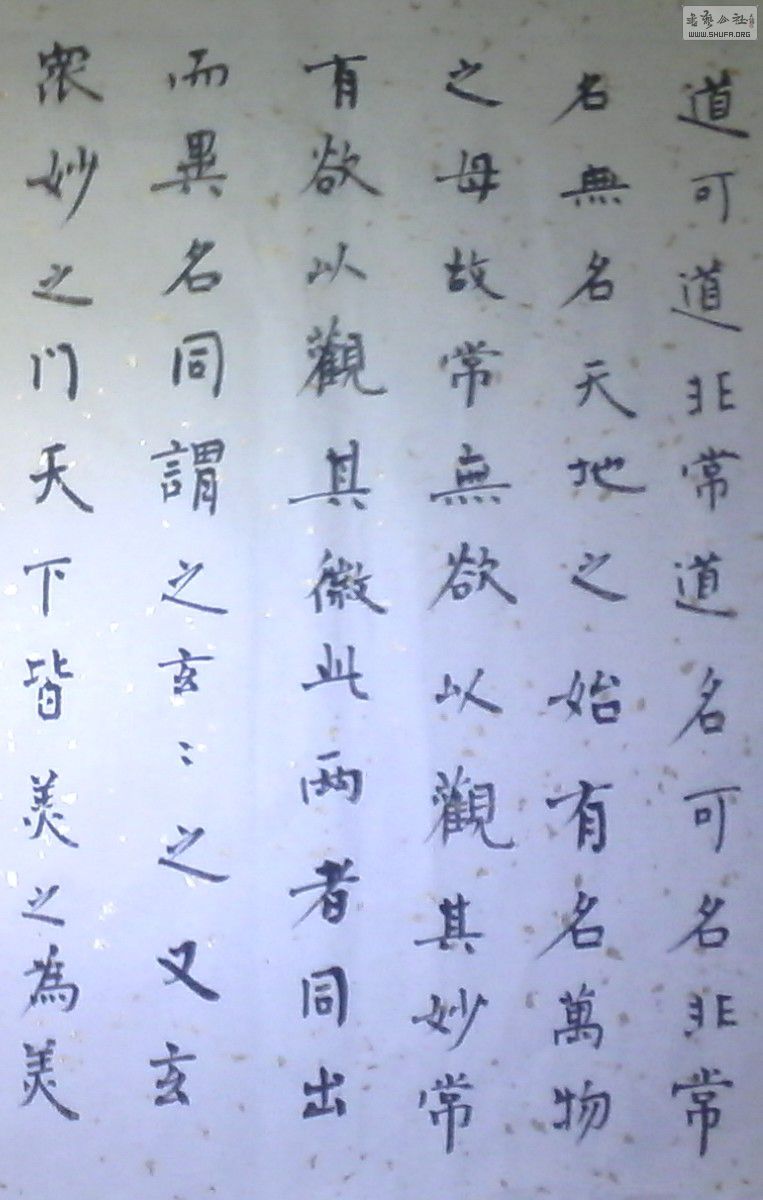 道可道道非常道名可名非常
名無名天地之始有名萬物
之母故常無欲以觀其妙常
有欲以觀其徼此兩者同出
而異名同謂之玄:之又玄
眾妙之门天下皆美之為美
WWW.SHUFA.ORG